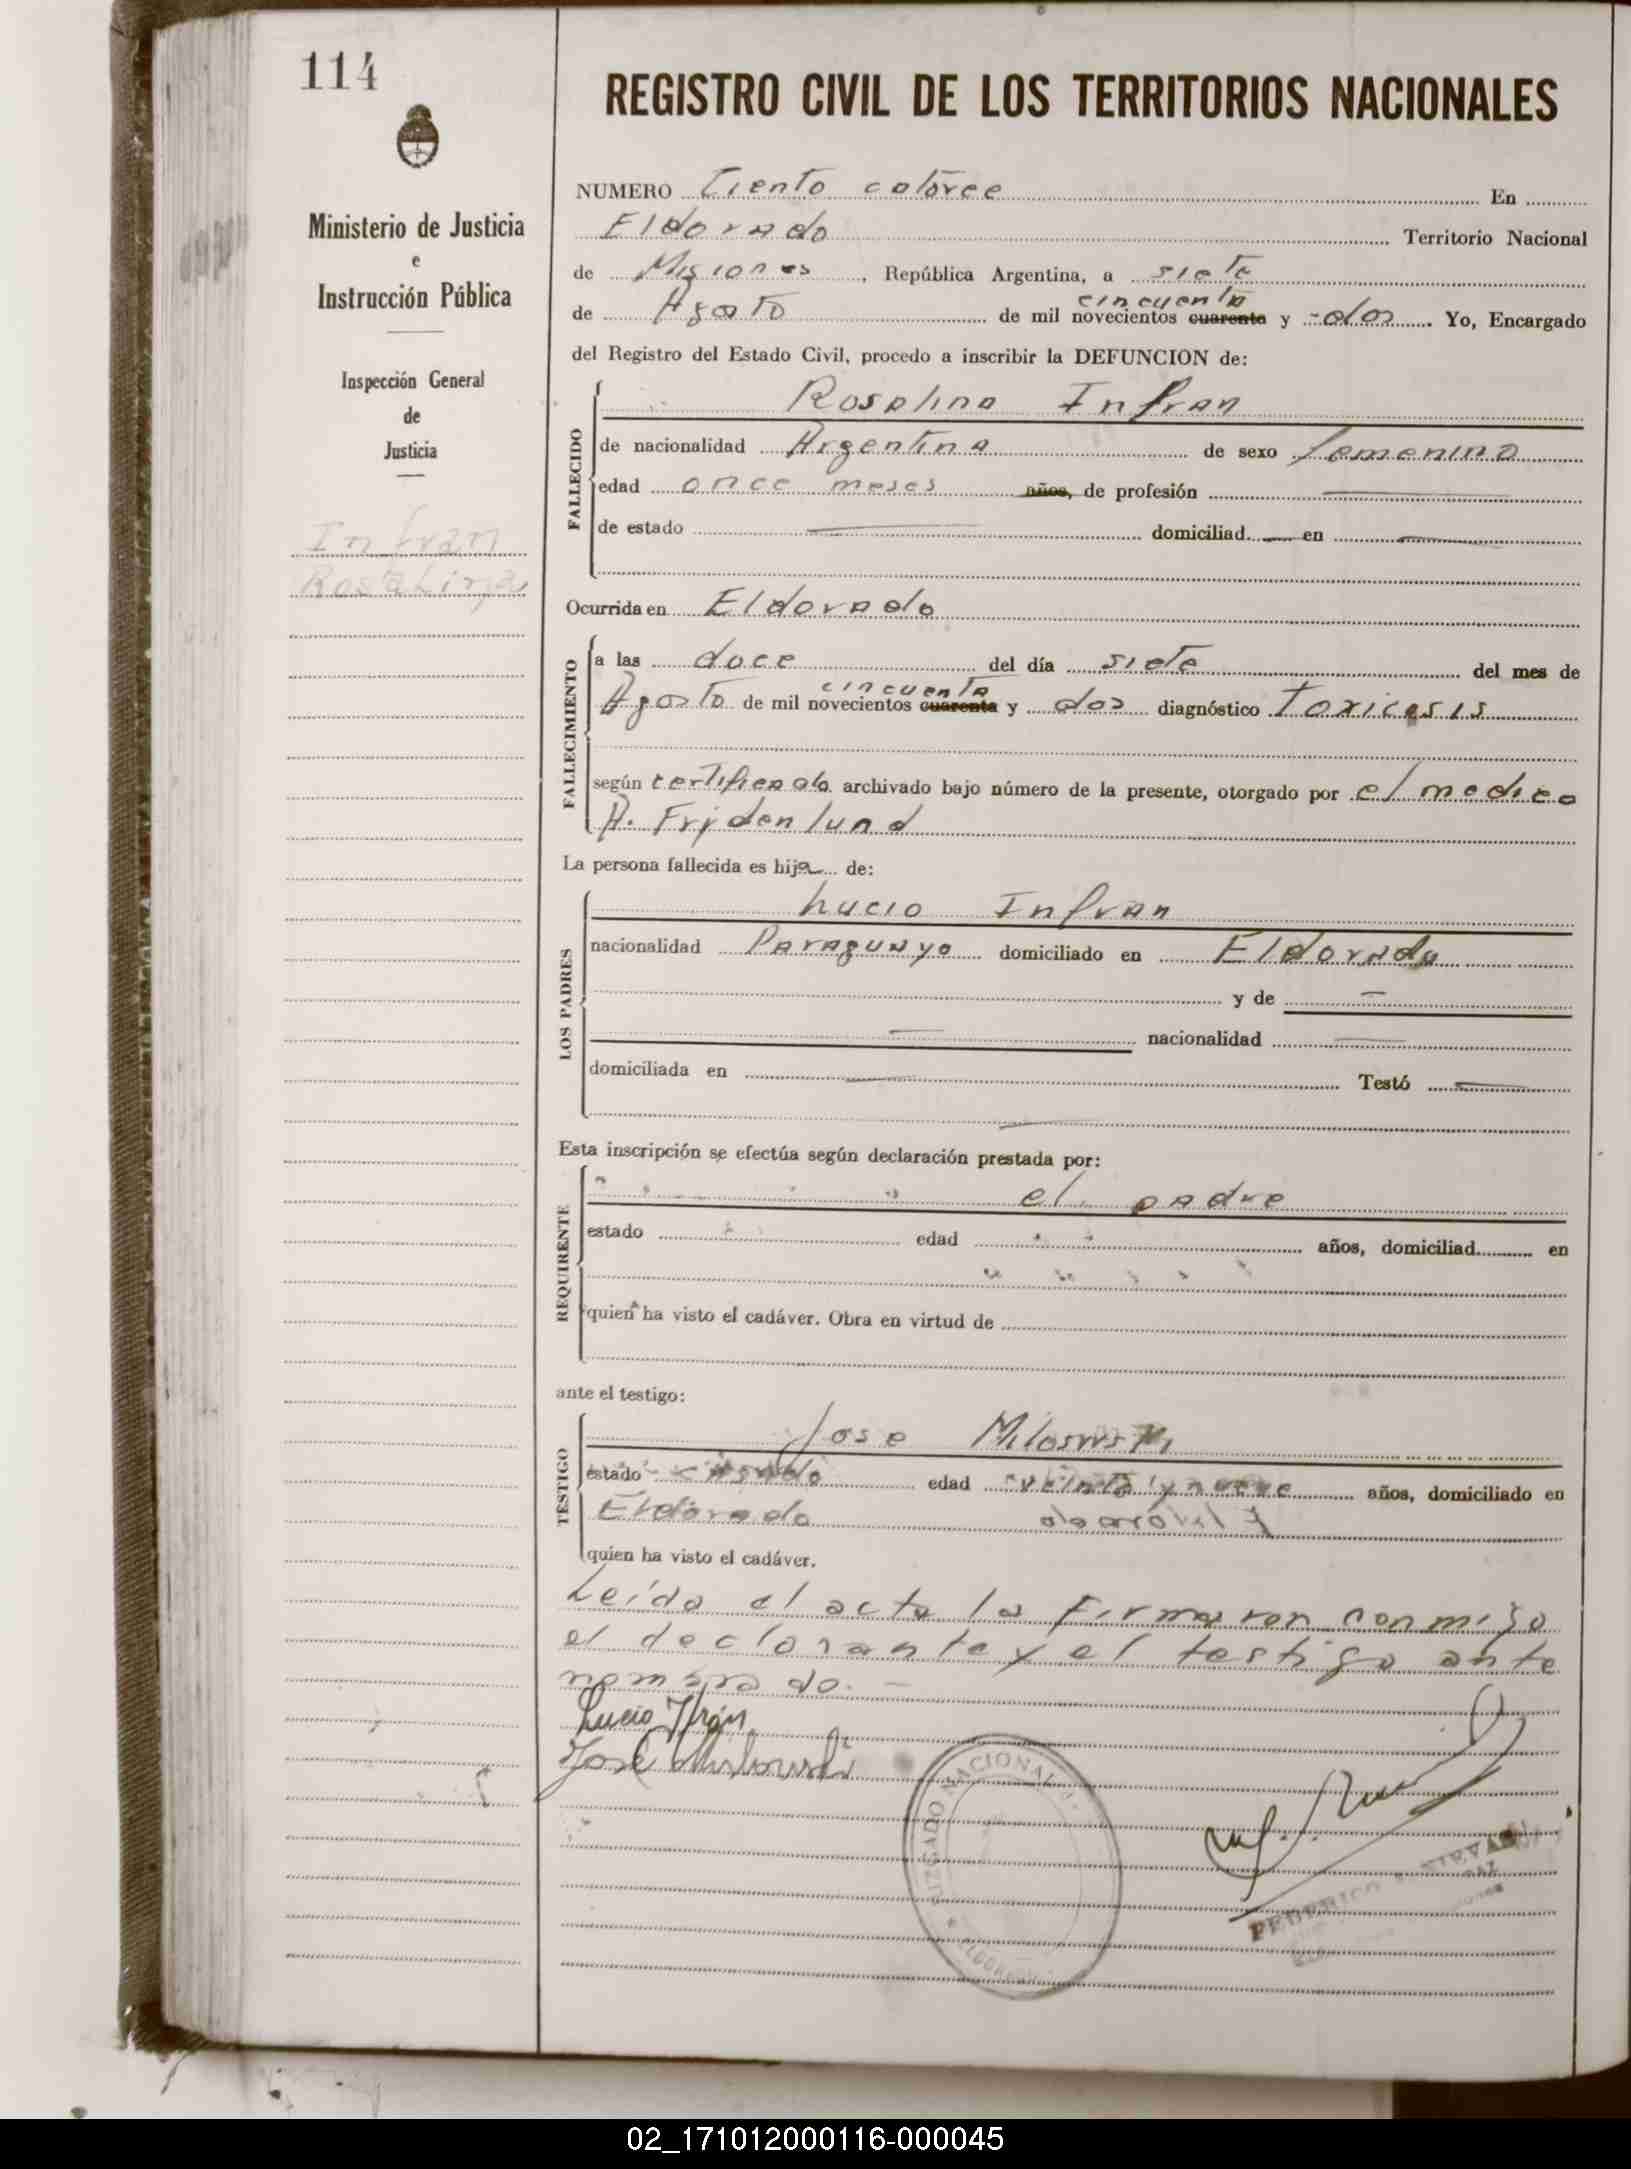 114
REGISTRO CIVIL DE LOS TERRITORIOS NACIONALES
Ministerio de Justicia
e
Instrucción Pública
Inspección General
de
Justicia
Infran
Rosalina
NUMERO Ciento catorce En
Eldorado Territorio Nacional
de Misiones, República Argentina, a siete
cincuenta
de Agosto de mil novecientos cuarenta y dos. Yo, Encargado
del Registro del Estado Civil, procedo a inscribir la DEFUNCION de:
FALLECIDO
Rosalina Infran
de nacionalidad Argentina de sexo femenino
edad once meses años, de profesión
de estado domiciliad en
Ocurrida en Eldorado
FALLECIMIENTO
a las doce del día siete del mes de
cincuenta
Agosto de mil novecientos cuarenta y dos diagnóstico Toxicosis
según certificado archivado bajo número de la presente, otorgado por el medico
A. Frydenlund
La persona fallecida es hija de:
LOS PADRES
Lucio Infran
nacionalidad Paraguayo domiciliado en Eldorado
y de
nacionalidad
domiciliada en Testó
Esta inscripción se efectúa según declaración prestada por:
REQUIRENTE
el padre
estado edad años, domiciliad en
quien ha visto el cadáver. Obra en virtud de
ante el testigo:
TESTIGO
Jose Milowski
estado casado edad veinte y nueve años, domiciliado en
Eldorado
quien ha visto el cadáver.
Leída el acta la firmaron conmigo
el declarante y el testigo ante
nombrado.
Lucio Ifrán
José Milowski
JUZGADO NACIONAL
ELDORADO
FEDERICO
PAZ
02_171012000116-000045